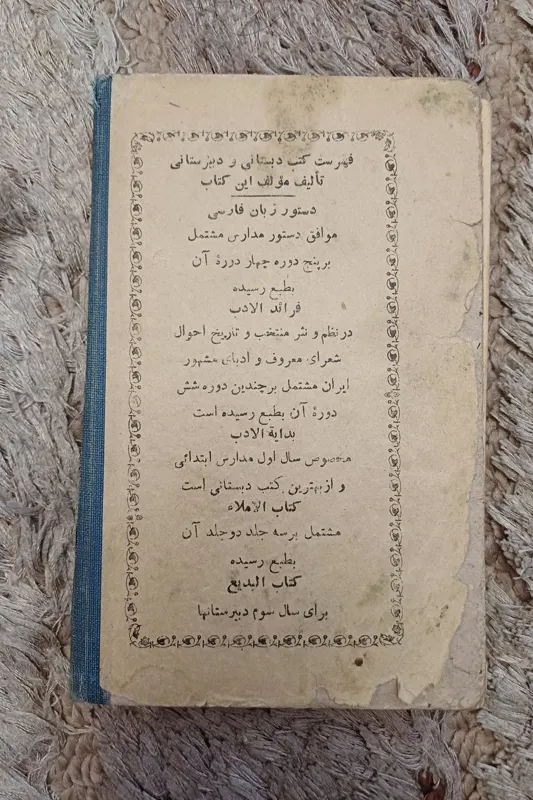 فهرست کتب دبستانی و دبیرستانی
تألیف مؤلف این کتاب
دستور زبان فارسی
موافق دستور مدارس مشتمل
بر پنج دوره چهار دورۀ آن
بطبع رسیده
فرائد الادب
در نظم و نثر منتخب و تاریخ احوال
شعرای معروف و ادبای مشهور
ایران مشتمل بر چندین دوره شش
دورۀ آن بطبع رسیده است
بدایة الادب
مخصوص سال اول مدارس ابتدائی
و از بهترین کتب دبستانی است
کتاب الاملاء
مشتمل بر سه جلد دو جلد آن
بطبع رسیده
کتاب البدیع
برای سال سوم دبیرستانها